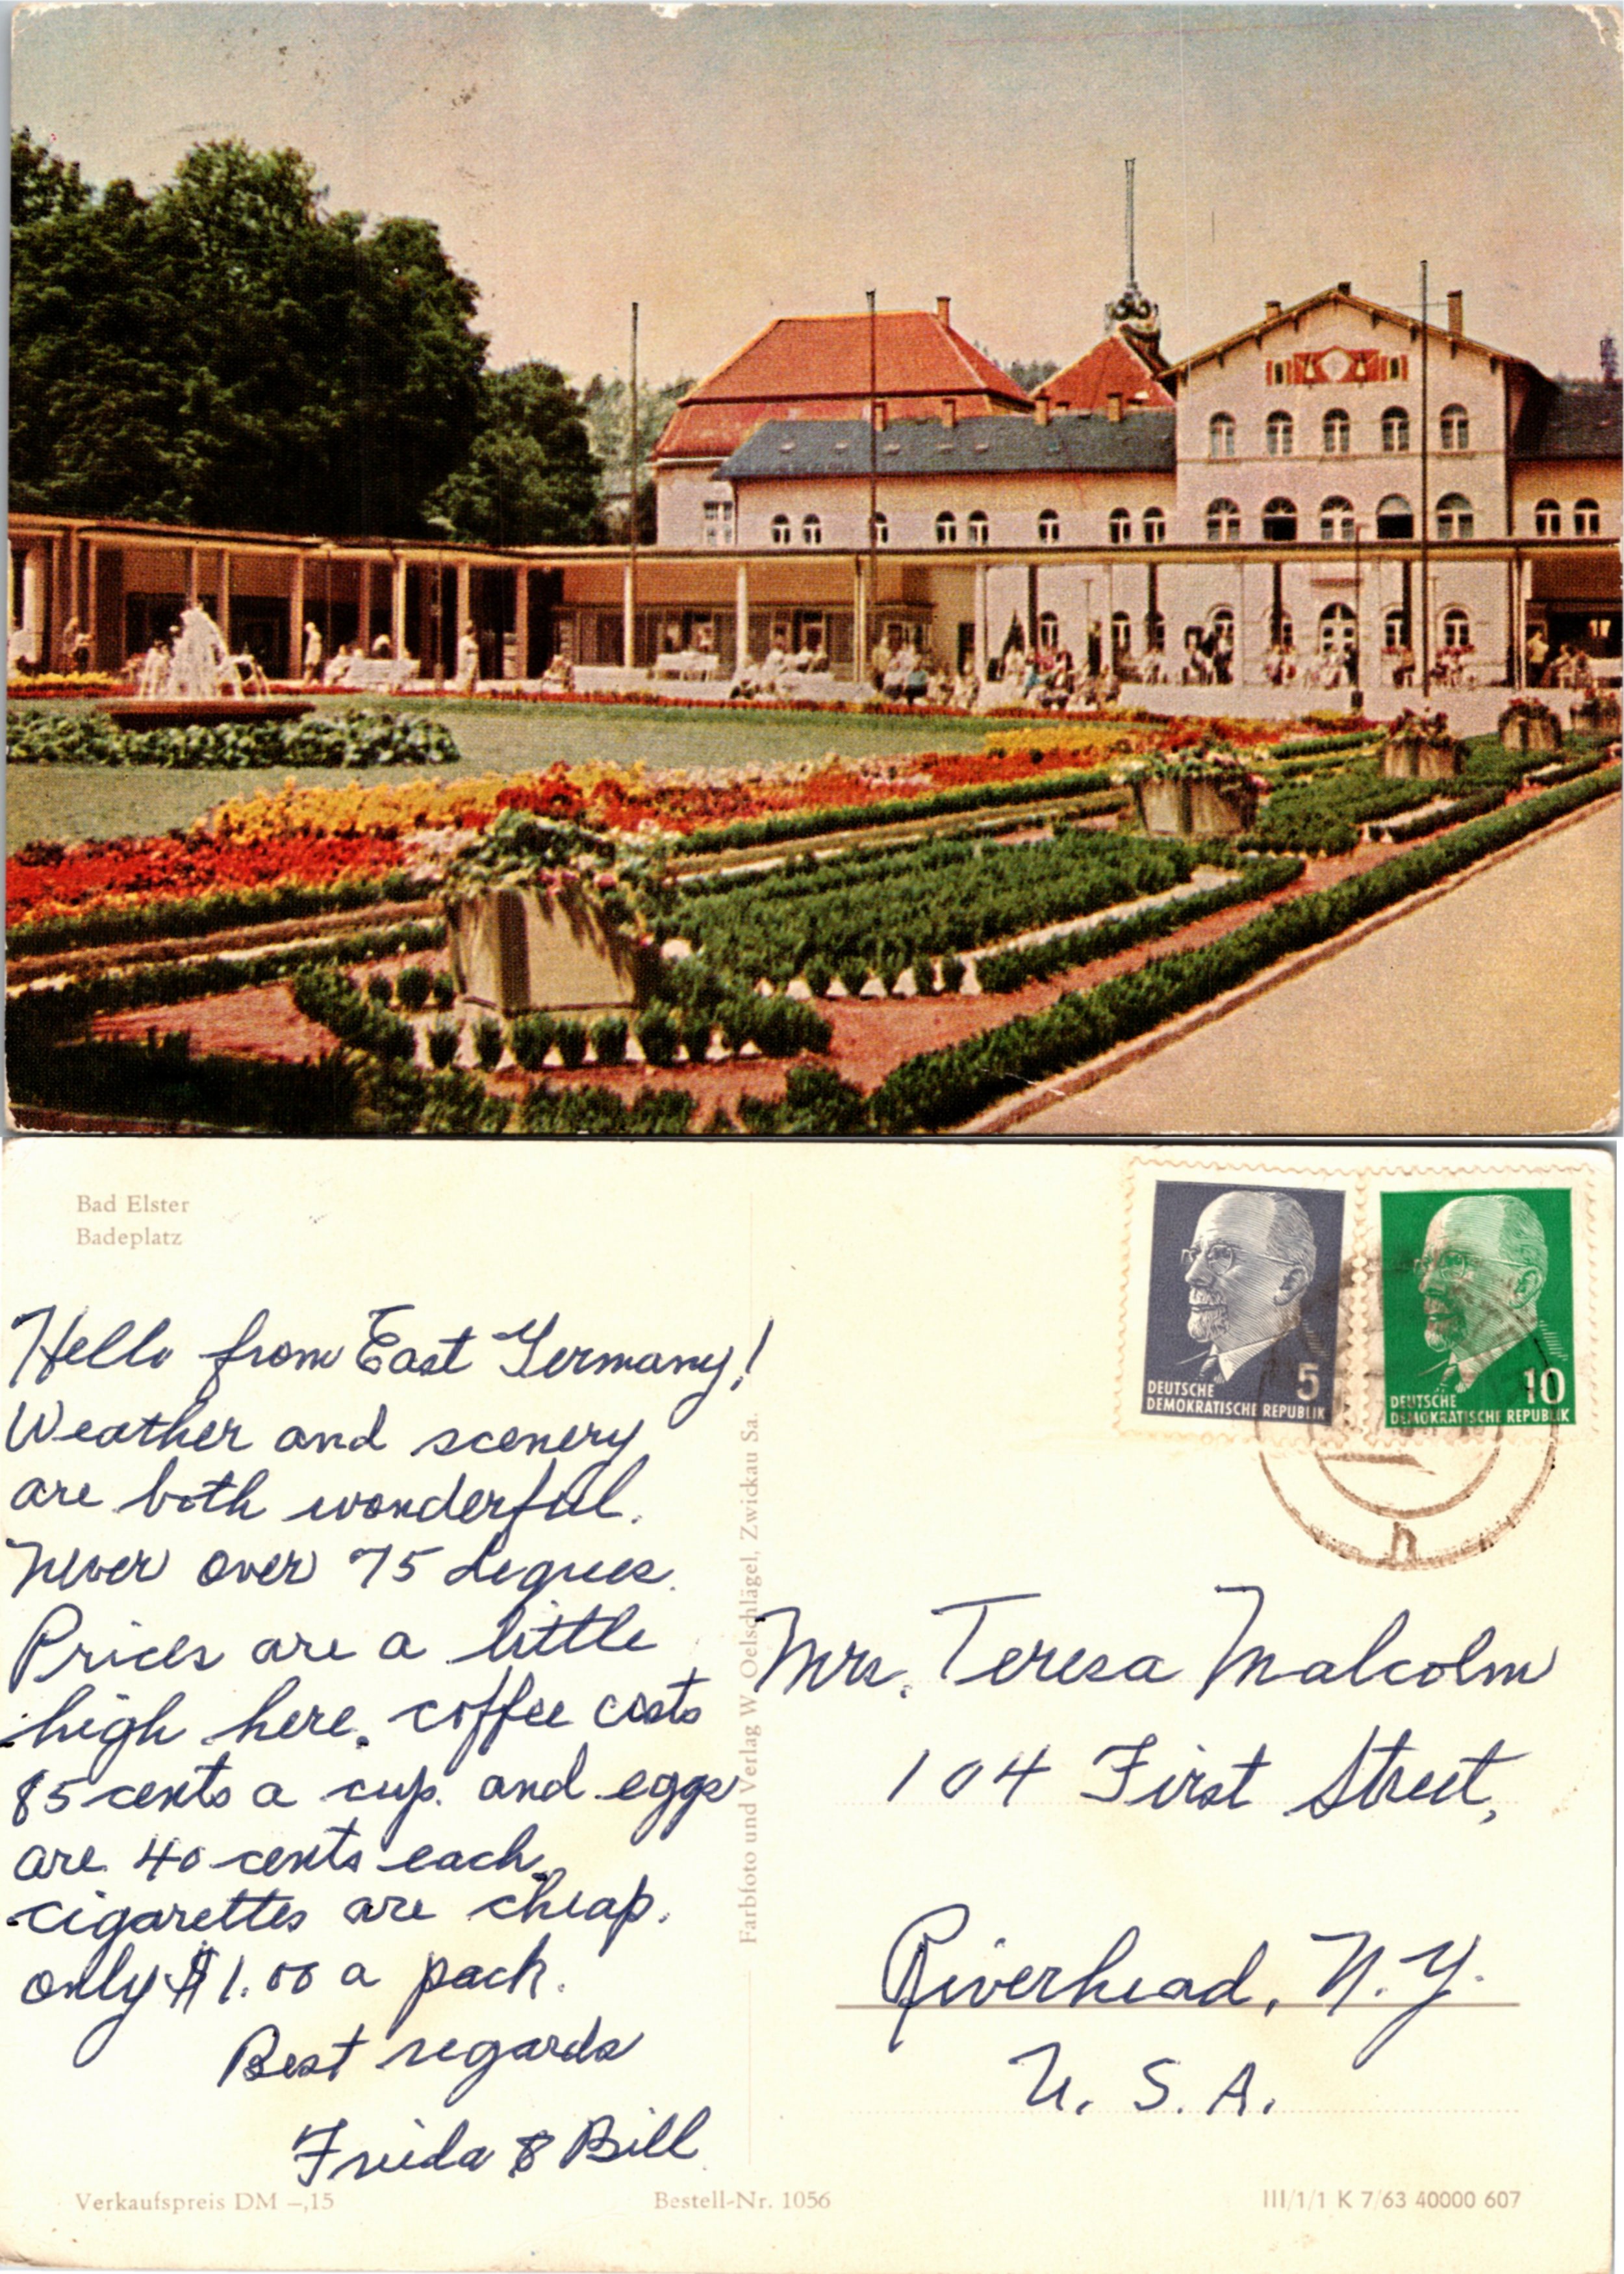 Bad Elster
Badeplatz
Hello from East Germany!
Weather and scenery
are both wonderful.
Never over 75 degrees.
Prices are a little
high here. coffee costs
85 cents a cup. and eggs
are 40 cents each.
cigarettes are cheap.
only $1.00 a pack.
Best regards
Frieda & Bill
Verkaufspreis DM –,15
Farbfoto und Verlag W. Oelschlägel, Zwickau Sa.
Bestell-Nr. 1056
5
DEUTSCHE
DEMOKRATISCHE REPUBLIK
10
DEUTSCHE
DEMOKRATISCHE REPUBLIK
n
Mrs. Teresa Malcolm
104 First Street,
Riverhead, N.Y.
U.S.A.
III/1/1 K 7/63 40000 607